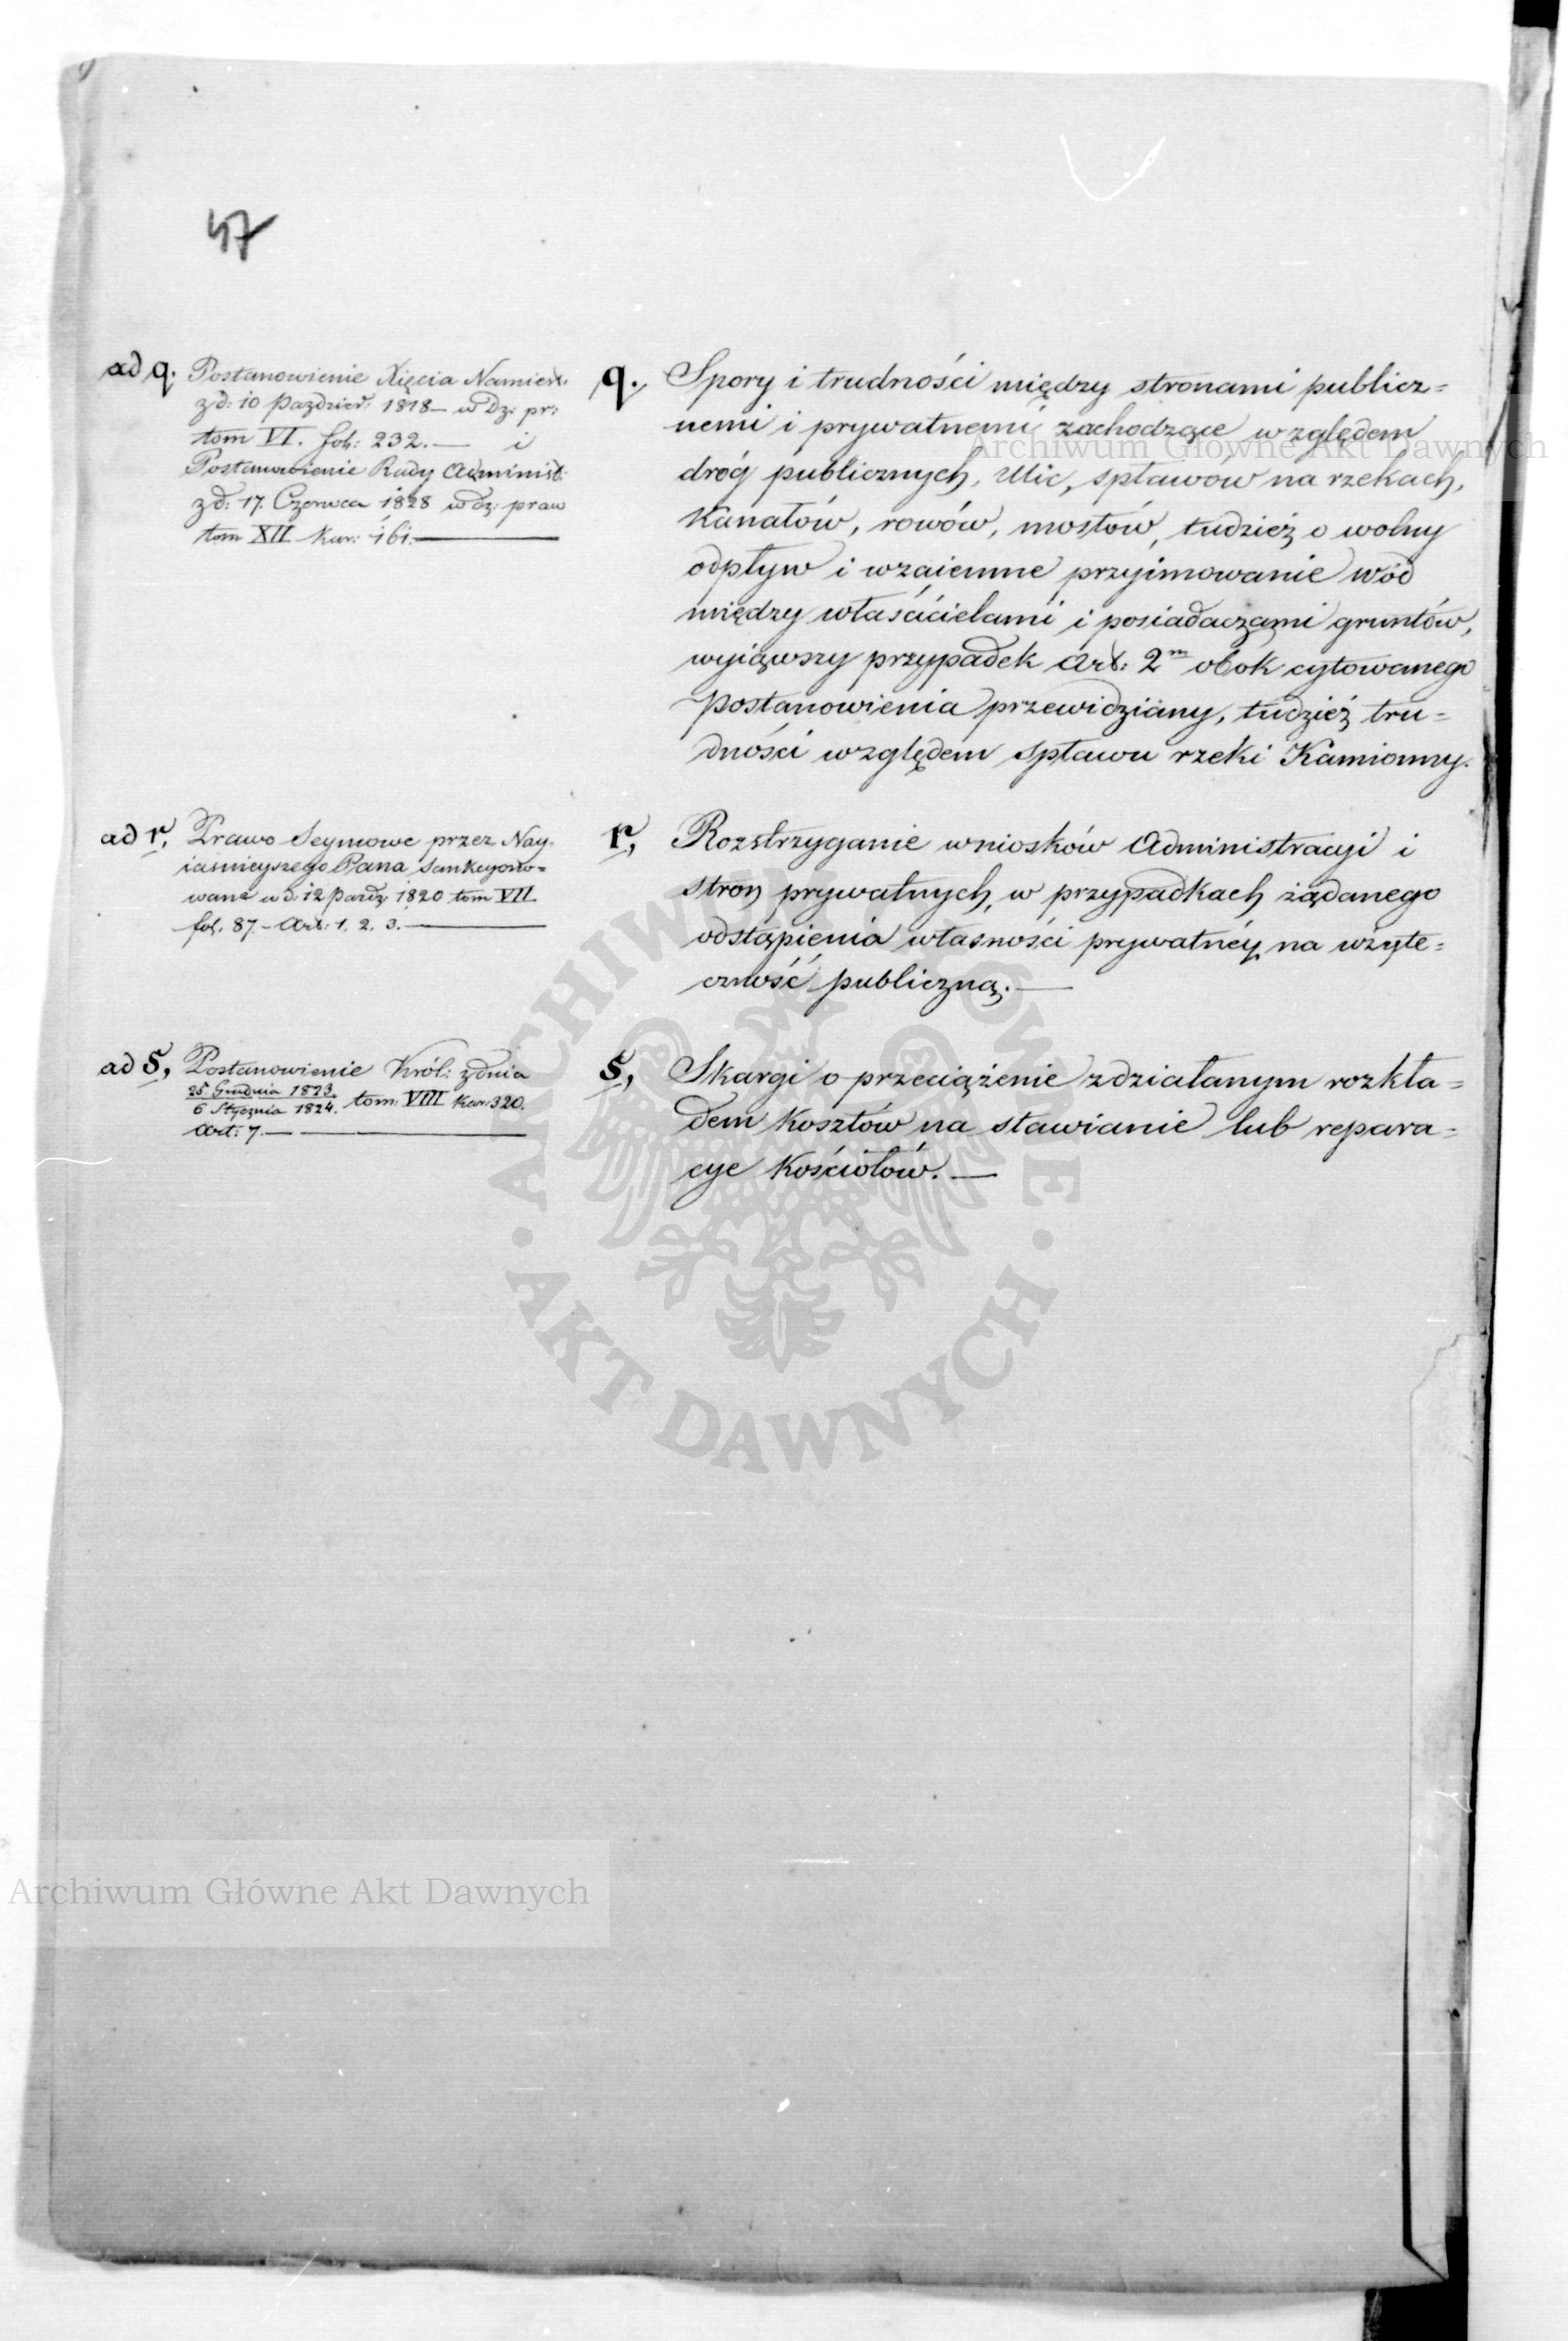 47
ad q. Postanowienie Xięcia Namiest:
z d: 10 Paździer: 1818 — w Dz: pr:
tom VI. fol: 232. — i
Postanowienie Rady Administ:
z d: 17. Czerwca 1828 w dz: praw
tom XII kar: 161. —
q., Spory i trudności między stronami publicz=
nemi i prywatnemi zachodzące względem
dróg publicznych, Ulic, spławów na rzekach,
Kanałów, rowów, mostów, tudzież o wolny
odpływ i wzaiemne przyimowanie wód
między właścicielami i posiadaczami gruntów,
wyiąwszy przypadek Art: 2m obok cytowanego
postanowienia przewidziany, tudzież tru=
dności względem spławu rzeki Kamionny.
ad r, Prawo Seymowe przez Nay-
iaśnieyszego Pana Sankcyono=
wane w d. 12 Paźdz 1820 tom VII.
fol. 87. — Art: 1. 2. 3. —
r, Rozstrzyganie wniosków Administracyi i
stron prywatnych, w przypadkach żądanego
odstąpienia własności prywatnéy na użyte=
czność publiczną. —
ad s, Postanowienie Król: z dnia
25 Grudnia 1823.
6 Stycznia 1824. tom: VIII kar: 320.
Art: 7. —
s, Skargi o przeciążenie zdziałanym rozkła=
dem Kosztów na stawianie lub repara=
cye Kościołów. —
Archiwum Główne Akt Dawnych
ARCHIWUM GŁÓWNE
AKT DAWNYCH
Archiwum Główne Akt Dawnych